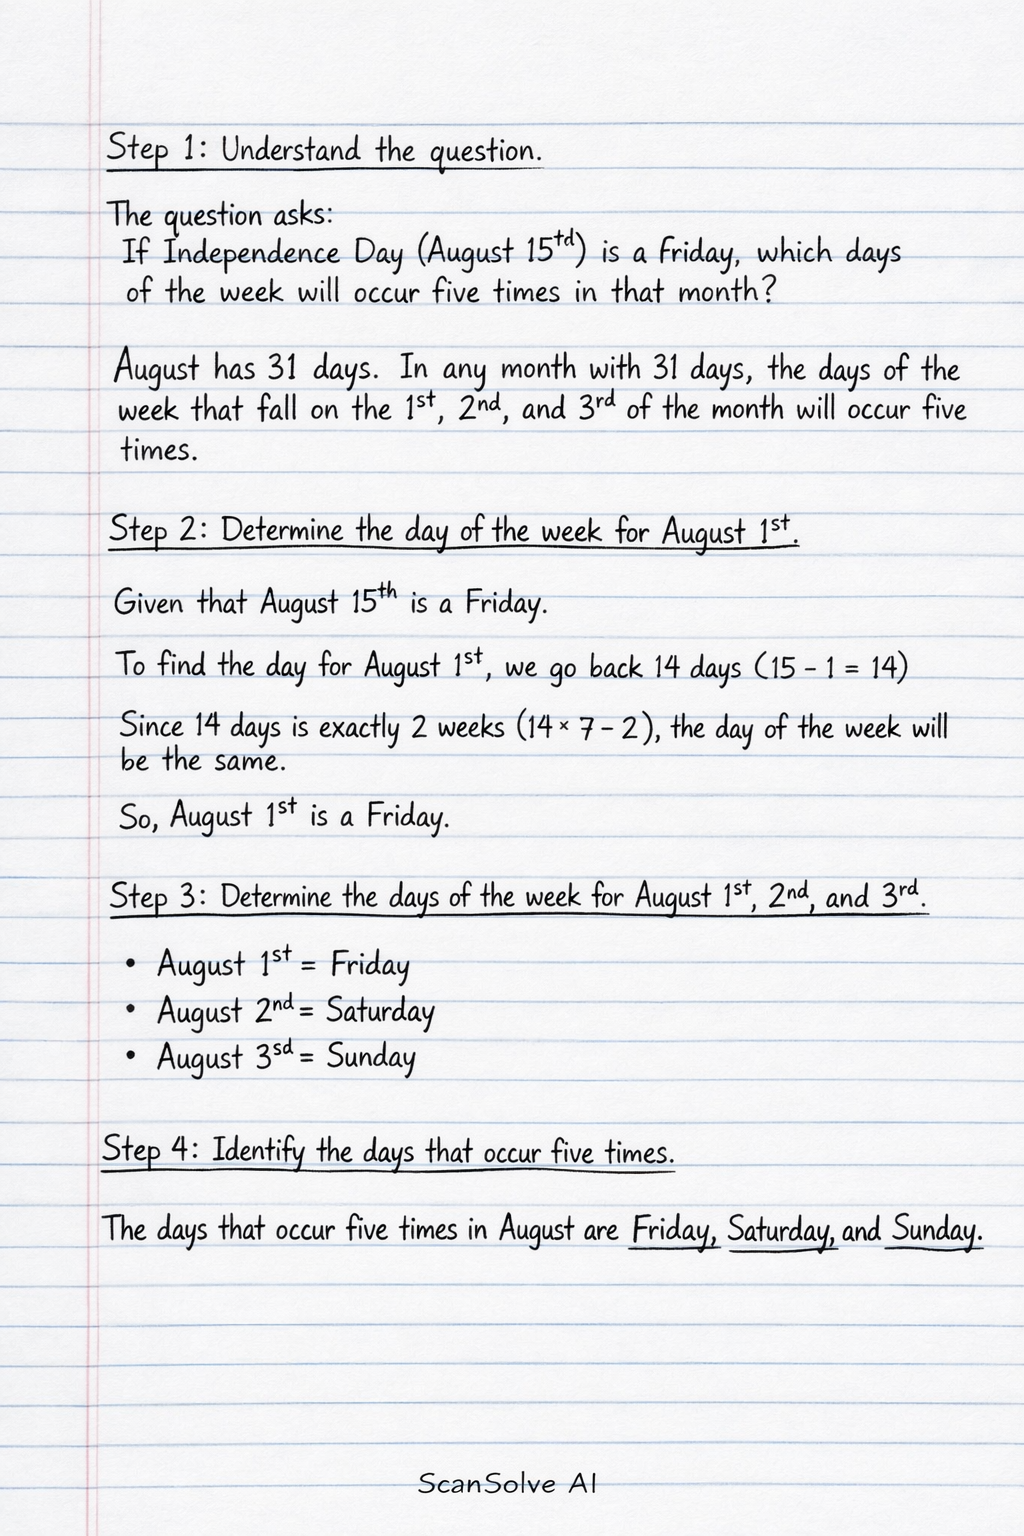 Step 1: Understand the question.
The question asks:
If Independence Day (August 15td) is a Friday, which days
of the week will occur five times in that month?
August has 31 days. In any month with 31 days, the days of the
week that fall on the 1st, 2nd, and 3rd of the month will occur five
times.
Step 2: Determine the day of the week for August 1st.
Given that August 15th is a Friday.
To find the day for August 1st, we go back 14 days (15 - 1 = 14)
Since 14 days is exactly 2 weeks (14 × 7 - 2), the day of the week will
be the same.
So, August 1st is a Friday.
Step 3: Determine the days of the week for August 1st, 2nd, and 3rd.
• August 1st = Friday
• August 2nd = Saturday
• August 3sd = Sunday
Step 4: Identify the days that occur five times.
The days that occur five times in August are Friday, Saturday, and Sunday.
ScanSolve AI